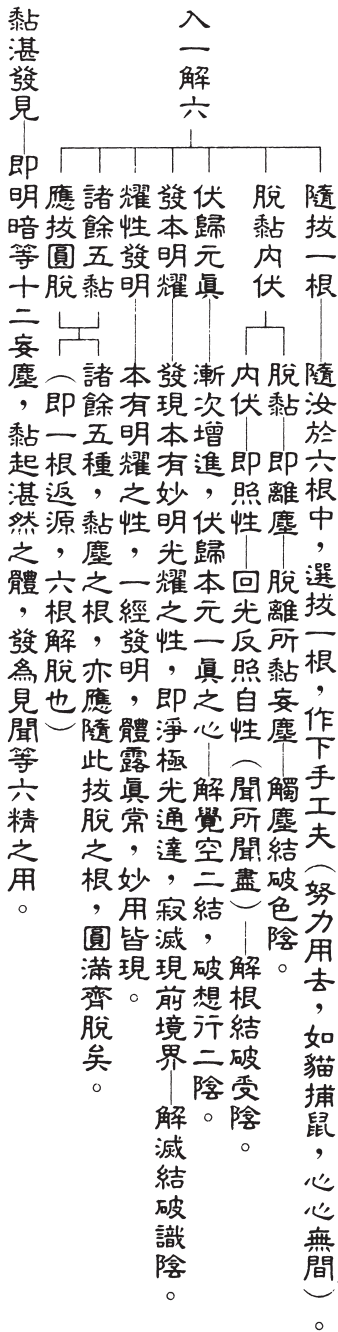 入一解六
隨拔一根—隨汝於六根中，選拔一根，作下手工夫（努力用去，如貓捕鼠，心心無間）。
脫黏內伏
脫黏—即離塵—脫離所黏妄塵—觸塵結破色陰。
內伏—即照性—回光反照自性（聞所聞盡）—解根結破受陰。
伏歸元眞—漸次增進，伏歸本元一眞之心—解覺空二結，破想行二陰。
發本明耀—發現本有妙明光耀之性，即淨極光通達，寂滅現前境界—解滅結破識陰。
耀性發明—本有明耀之性，一經發明，體露眞常，妙用皆現。
諸餘五黏
應拔圓脫
諸餘五種，黏塵之根，亦應隨此拔脫之根，圓滿齊脫矣。
（即一根返源，六根解脫也）
黏湛發見—即明暗等十二妄塵，黏起湛然之體，發為見聞等六精之用。